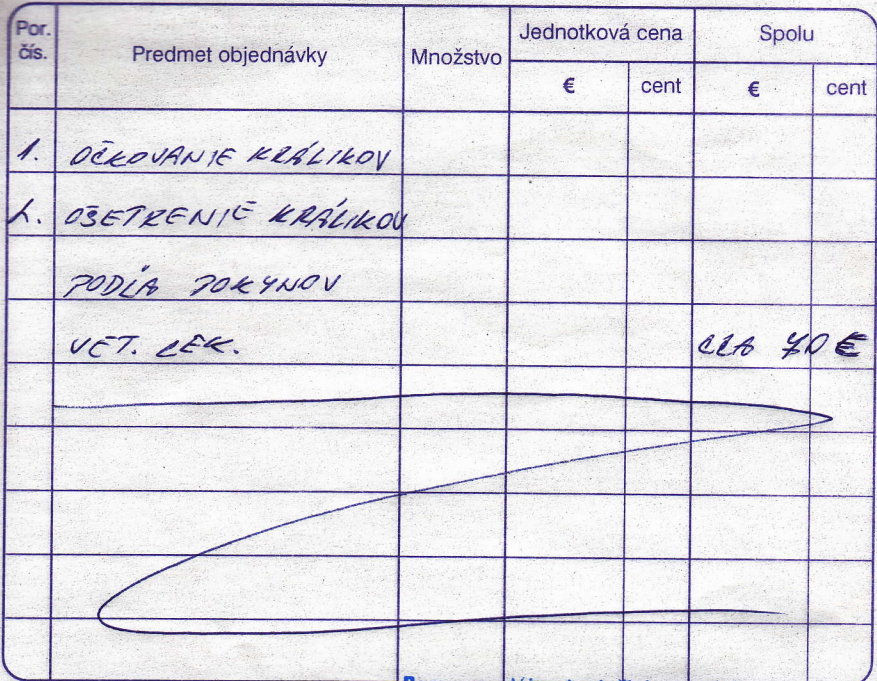 Por. čís. Predmet objednávky Množstvo Jednotková cena Spolu
€ cent € cent
1. OČKOVANIE KRÁLIKOV
2. OŠETRENIE KRÁLIKOV
PODĽA POKYNOV
VET. LEK. CCA €